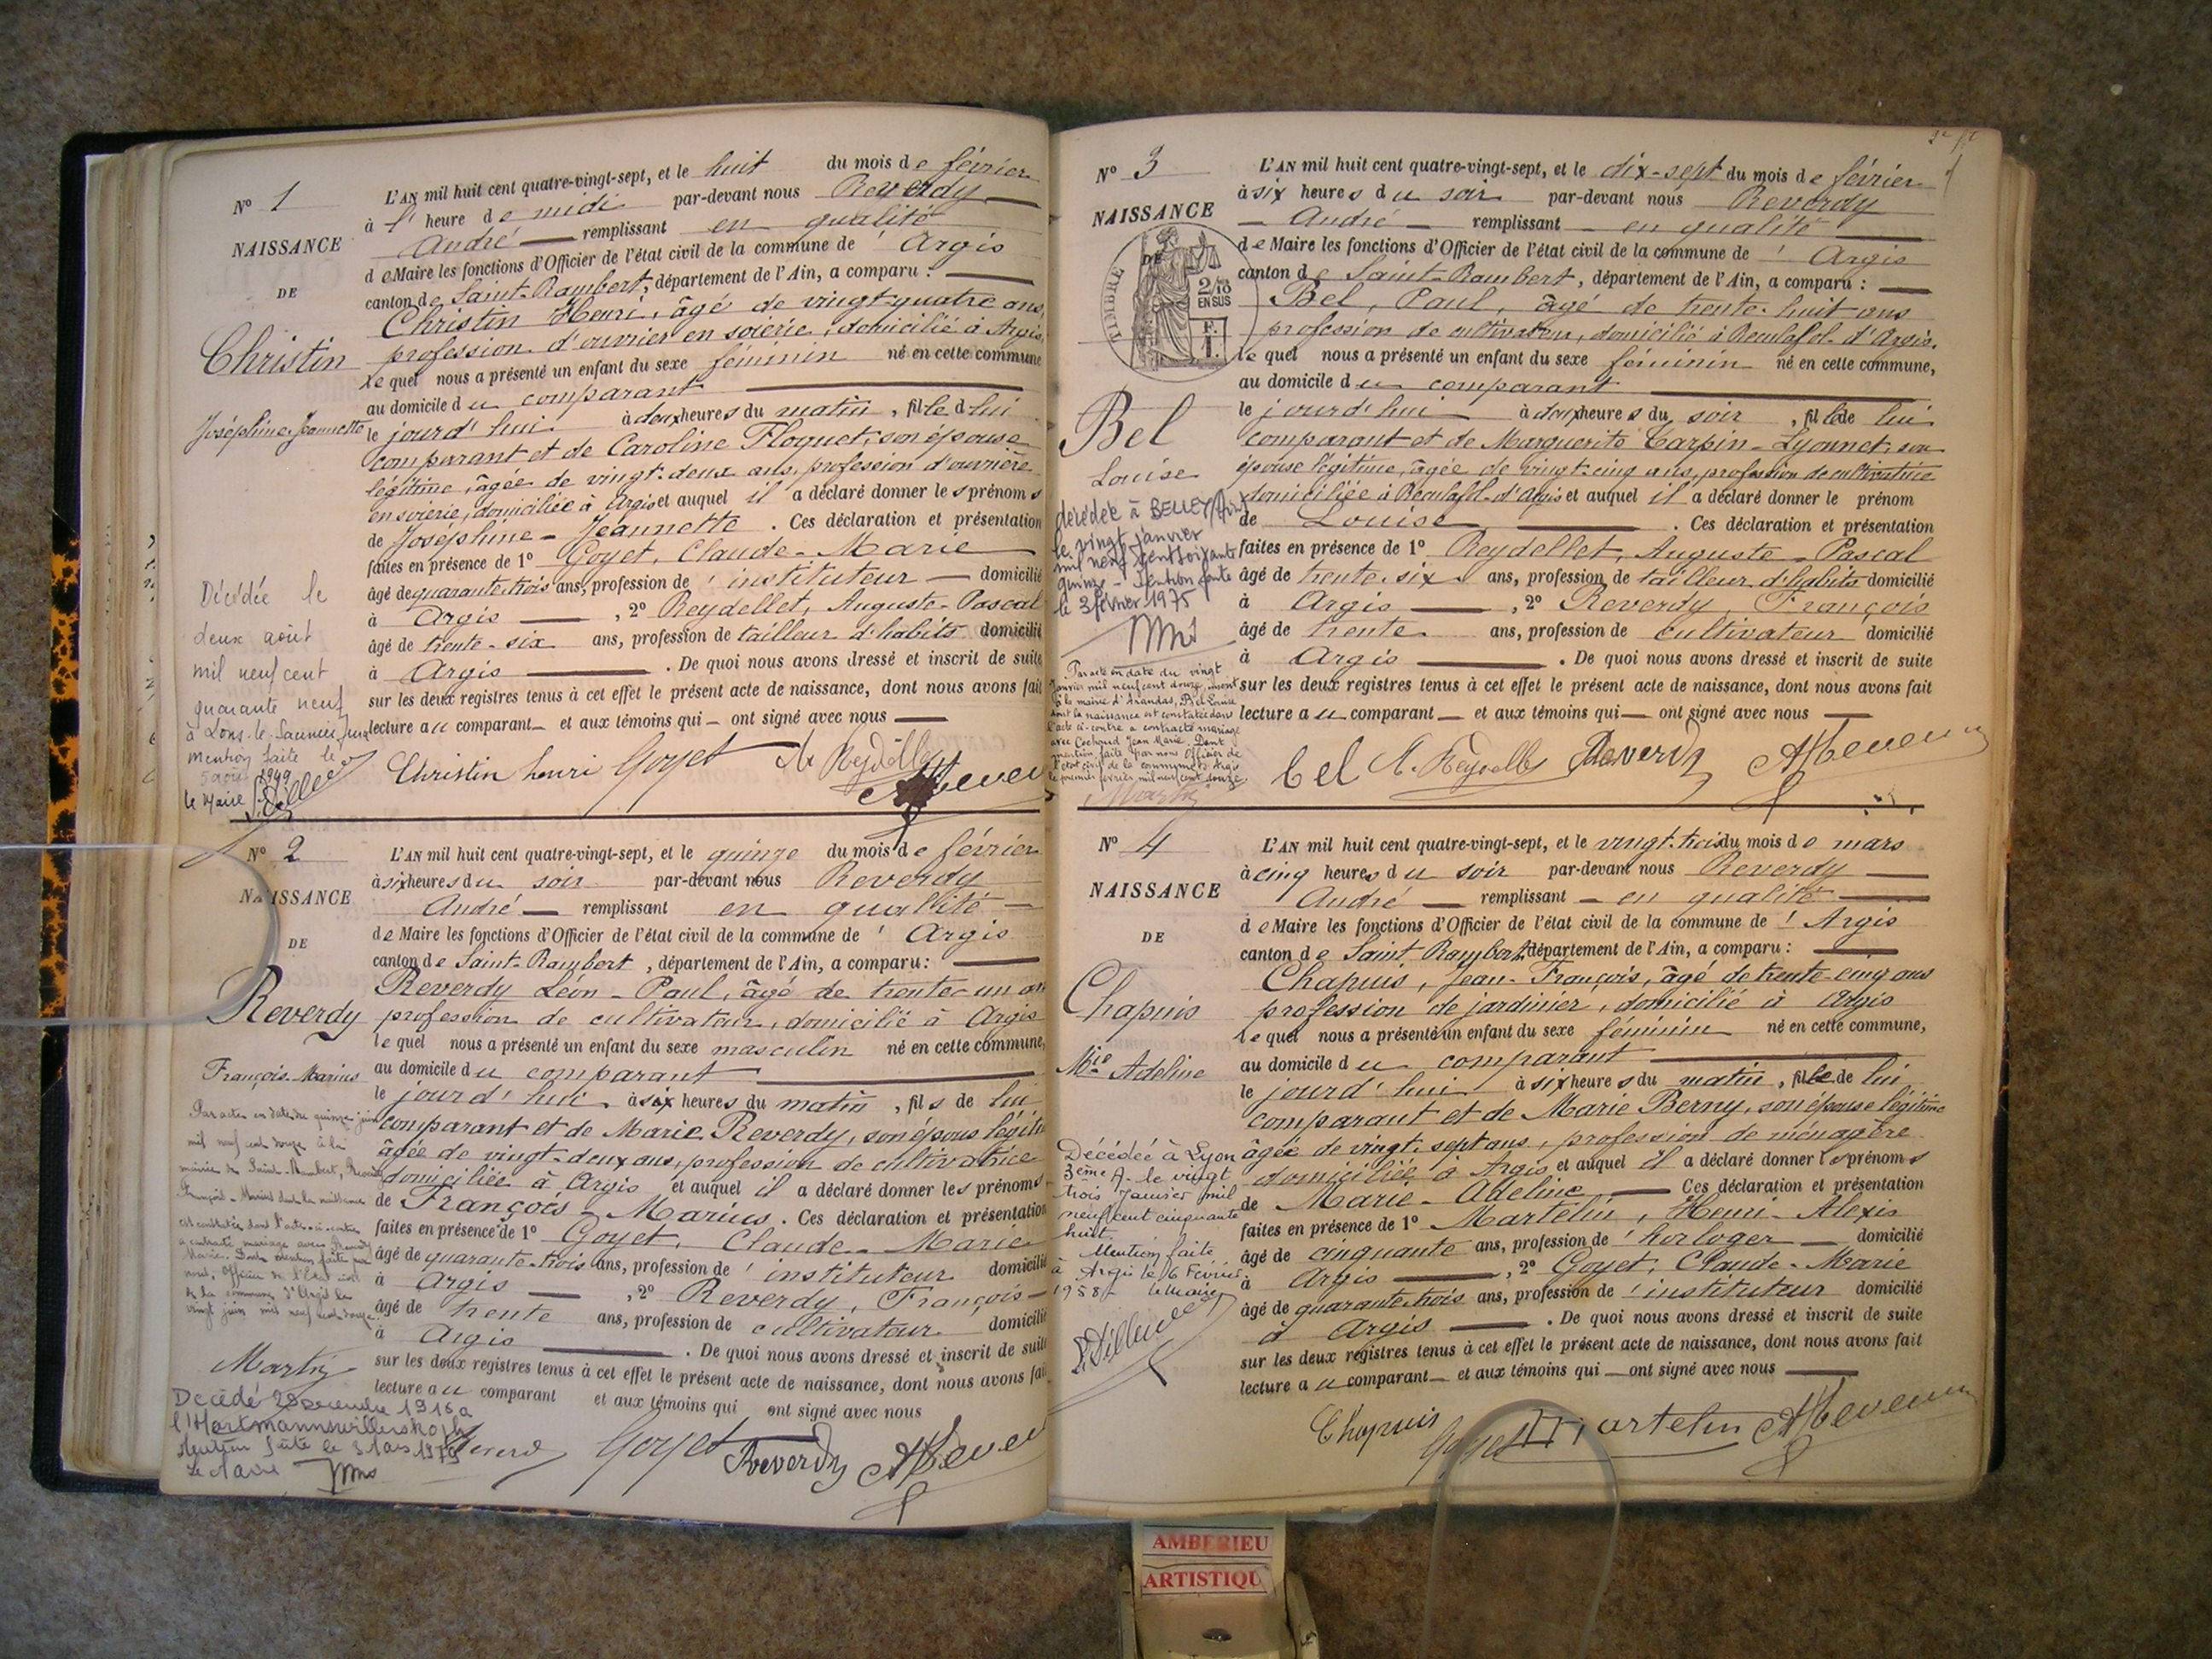 N° 1
NAISSANCE
DE
Christin
Joséphine-Jeannette
Décédée le
deux août
mil neuf cent
quarante neuf
à Lons-le-Saunier
mention faite le
5 août 1949
le Maire
L'AN mil huit cent quatre-vingt-sept, et le huit du mois de février
à l' heure de midi par-devant nous Reverdy
André remplissant en qualité
de Maire les fonctions d'Officier de l'état civil de la commune de ' Argis
canton de Saint-Rambert, département de l'Ain, a comparu :
Christin Henri, âgé de vingt-quatre ans,
profession d'ouvrier en soierie, domicilié à Argis,
lequel nous a présenté un enfant du sexe féminin né en cette commune
au domicile du comparant
le jourd'hui à deux heures du matin, fille de lui
comparant et de Caroline Floquet, son épouse
légitime, âgée de vingt-deux ans, profession d'ouvrière
en soierie, domiciliée à Argis et auquel il a déclaré donner les prénoms
de Joséphine-Jeannette. Ces déclaration et présentation
faites en présence de 1° Goyet, Claude-Marie
âgé de quarante-trois ans, profession de ' instituteur domicilié
à Argis, 2° Reydellet, Auguste-Pascal
âgé de trente-six ans, profession de tailleur d'habits domicilié
à Argis. De quoi nous avons dressé et inscrit de suite
sur les deux registres tenus à cet effet le présent acte de naissance, dont nous avons fait
lecture au comparant et aux témoins qui ont signé avec nous
Christin henri Goyet A. Reydellet
N° 2
NAISSANCE
DE
Reverdy
François-Marius
Par acte en date du quinze juin
mil neuf cent douze à la
mairie de Saint-Rambert, Reverdy
François-Marius dont la naissance
est constatée dans l'acte ci-contre
a contracté mariage avec Reverdy
Marie. Dont mention faite par
nous, Officier de l'Etat civil
de la commune d'Argis le
vingt juin mil neuf cent douze.
Décédé 28 décembre 1915 à
l'Hartmannswillerskopf
Mention faite le 3 Mars 1979
Le Maire
L'AN mil huit cent quatre-vingt-sept, et le quinze du mois de février
à six heures du soir par-devant nous Reverdy
André remplissant en qualité
de Maire les fonctions d'Officier de l'état civil de la commune de ' Argis
canton de Saint-Rambert, département de l'Ain, a comparu :
Reverdy Léon-Paul, âgé de trente-un an
profession de cultivateur, domicilié à Argis
lequel nous a présenté un enfant du sexe masculin né en cette commune,
au domicile du comparant
le jourd'hui à six heures du matin, fils de lui
comparant et de Marie Reverdy, son épouse légitime
âgée de vingt-deux ans, profession de cultivatrice
domiciliée à Argis et auquel il a déclaré donner les prénoms
de François-Marius. Ces déclaration et présentation
faites en présence de 1° Goyet, Claude-Marie
âgé de quarante-trois ans, profession de ' instituteur domicilié
à Argis, 2° Reverdy, François
âgé de trente ans, profession de cultivateur domicilié
à Argis. De quoi nous avons dressé et inscrit de suite
sur les deux registres tenus à cet effet le présent acte de naissance, dont nous avons fait
lecture au comparant et aux témoins qui ont signé avec nous
Goyet Reverdy
N° 3
NAISSANCE
DE
TIMBRE
2/10
EN SUS
Bel
Louise
décédée à BELLEY (Ain)
le vingt janvier
mil neuf cent soixante
quinze - Mention faite
le 3 février 1975
Par acte en date du vingt
janvier mil neuf cent douze, inscrit
à la mairie d'Arandas, Bel Louise
dont la naissance est constatée dans
l'acte ci-contre a contracté mariage
avec Cochard Jean Marie. Dont
mention faite par nous Officier de
l'état civil de la commune d'Argis
le premier février mil neuf cent douze
L'AN mil huit cent quatre-vingt-sept, et le dix-sept du mois de février
à six heures du soir par-devant nous Reverdy
André remplissant en qualité
de Maire les fonctions d'Officier de l'état civil de la commune de ' Argis
canton de Saint-Rambert, département de l'Ain, a comparu :
Bel, Paul, âgé de trente-huit ans
profession de cultivateur, domicilié à Reculafol-d'Argis.
lequel nous a présenté un enfant du sexe féminin né en cette commune,
au domicile du comparant
le jourd'hui à deux heures du soir, fille de lui
comparant et de Marguerite Carpin-Lyonnet, son
épouse légitime, âgée de vingt-cinq ans, profession de cultivatrice
domiciliée à Reculafol-d'Argis et auquel il a déclaré donner le prénom
de Louise. Ces déclaration et présentation
faites en présence de 1° Reydellet, Auguste-Pascal
âgé de trente-six ans, profession de tailleur d'habits domicilié
à Argis, 2° Reverdy, François
âgé de trente ans, profession de cultivateur domicilié
à Argis. De quoi nous avons dressé et inscrit de suite
sur les deux registres tenus à cet effet le présent acte de naissance, dont nous avons fait
lecture au comparant et aux témoins qui ont signé avec nous
bel A. Reydellet Reverdy
N° 4
NAISSANCE
DE
Chapuis
Mie Adeline
Décédée à Lyon
3ème A. le vingt
trois Janvier mil
neuf cent cinquante
huit.
Mention faite
à Argis le 6 Février
1958 le Maire
L'AN mil huit cent quatre-vingt-sept, et le vingt-trois du mois de mars
à cinq heures du soir par-devant nous Reverdy
André remplissant en qualité
de Maire les fonctions d'Officier de l'état civil de la commune de ' Argis
canton de Saint Rambert, département de l'Ain, a comparu :
Chapuis, Jean-François, âgé de trente-cinq ans
profession de jardinier, domicilié à Argis
lequel nous a présenté un enfant du sexe féminin né en cette commune,
au domicile du comparant
le jourd'hui à six heures du matin, fille de lui
comparant et de Marie Berny, son épouse légitime
âgée de vingt-sept ans, profession de ménagère
domiciliée à Argis et auquel il a déclaré donner les prénoms
de Marie-Adeline Ces déclaration et présentation
faites en présence de 1° Martelin, Henri-Alexis
âgé de cinquante ans, profession de ' horloger domicilié
à Argis, 2° Goyet, Claude-Marie
âgé de quarante-trois ans, profession de ' instituteur domicilié
à Argis. De quoi nous avons dressé et inscrit de suite
sur les deux registres tenus à cet effet le présent acte de naissance, dont nous avons fait
lecture au comparant et aux témoins qui ont signé avec nous
Chapuis Goyet Martelin
AMBERIEU
ARTISTIQU